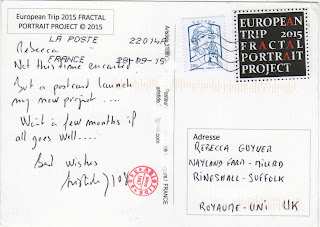 European Trip 2015 FRACTAL
PORTRAIT PROJECT © 2015
LA POSTE
22014A
FRANCE
29-09-15
Rebecca
Not this time encarted
But a postcard launch
my new project ....
Wait a few months if
all goes Well....
Best Wishes
EUROPEAN
TRIP 2015
FRACTAL
PORTRAIT
PROJECT
FRANCE
Adresse
REBECCA GUYVER
RINGSHALL - SUFFOLK
ROYAUME-UNI UK